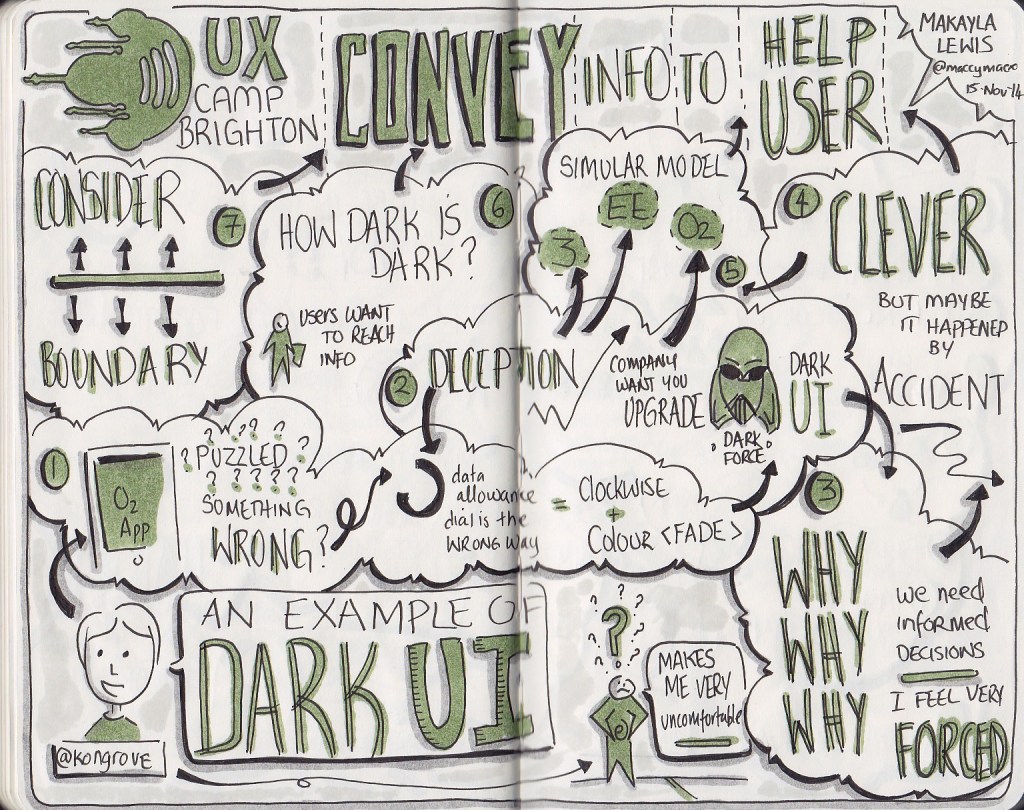 UX
CAMP
BRIGHTON
CONVEY
INFO TO
HELP
USER
MAKAYLA
LEWIS
@maccymacx
15·Nov'14
CONSIDER
BOUNDARY
7
HOW DARK IS
DARK?
6
USERS WANT
TO REACH
INFO
SIMULAR MODEL
3
EE
O2
5
4
CLEVER
BUT MAYBE
IT HAPPENED
BY
ACCIDENT
2
DECEPTION
COMPANY
WANT YOU
UPGRADE
DARK
FORCE
DARK
UI
1
O2
App
? ? ? ? ?
? PUZZLED ?
? ? ? ? ? ?
SOMETHING
WRONG?
data
allowance
dial is the
WRONG WAY
=
CLOCKWISE
+
COLOUR <FADE>
3
WHY
WHY
WHY
we need
informed
DECISIONS
I FEEL VERY
FORCED
@kongrove
AN EXAMPLE OF
DARK UI
?
MAKES
ME VERY
uncomfortable